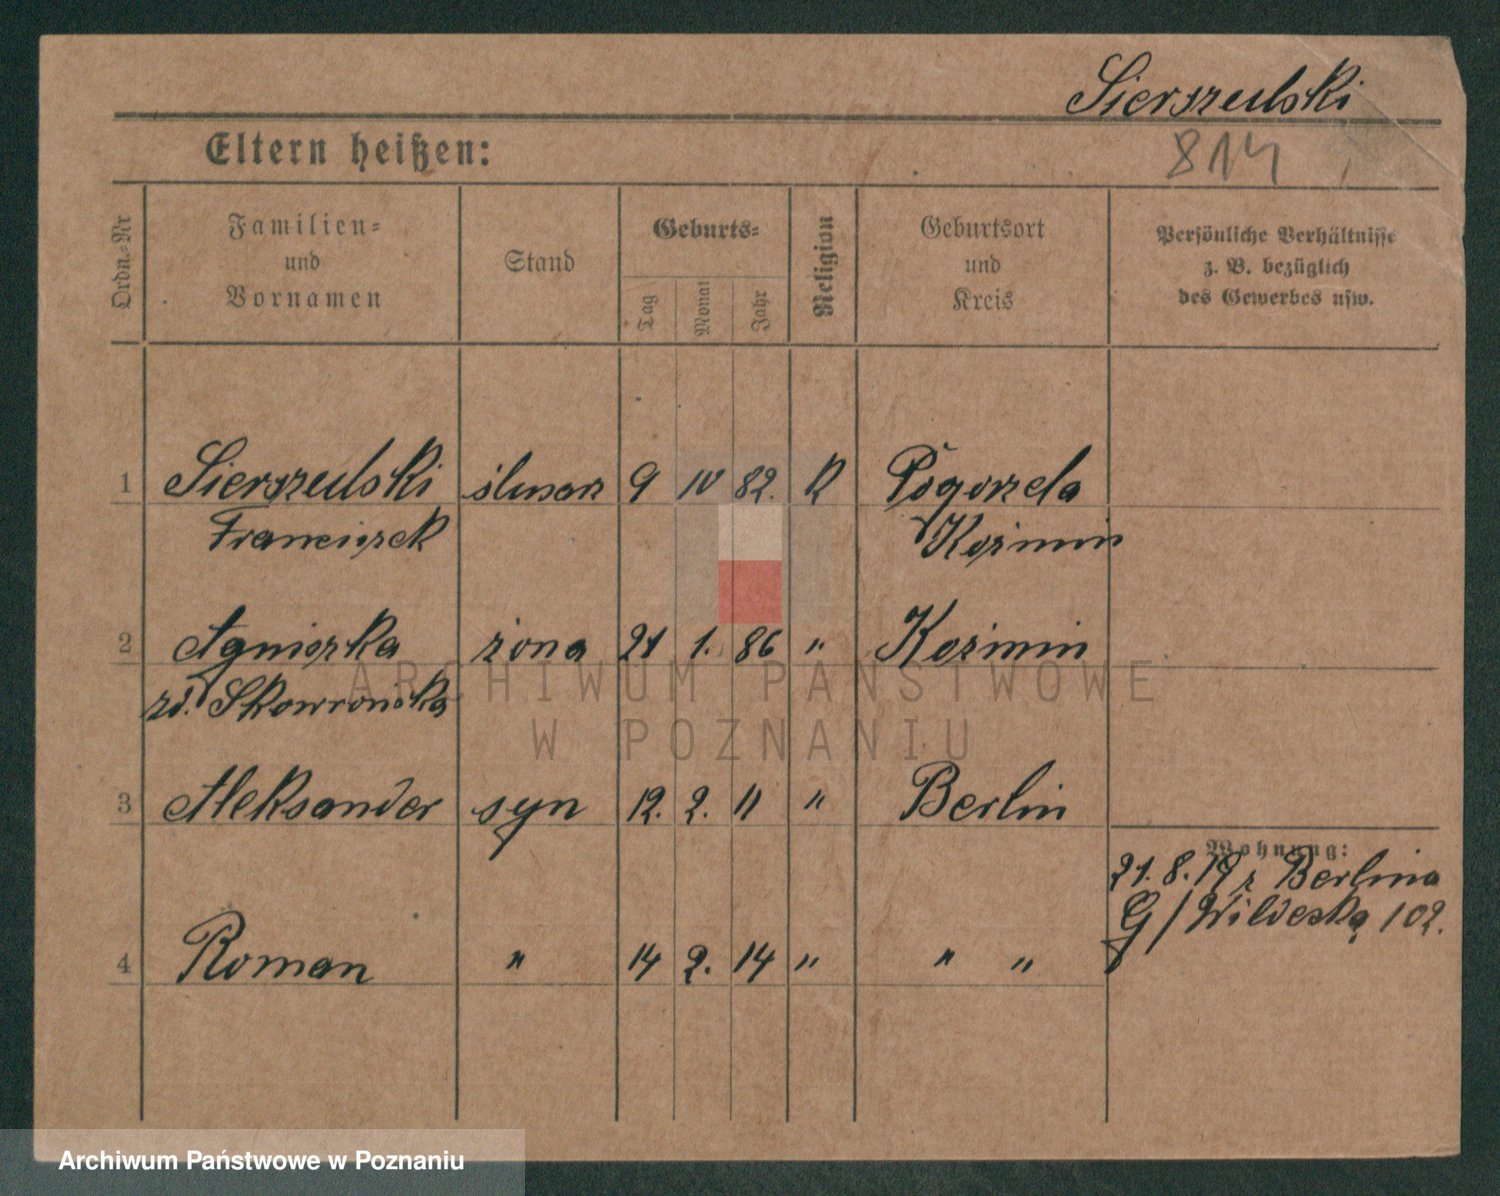 Sierszulski
814
Eltern heißen:
Ordn.=Nr
Familien=
und
Vornamen
Stand
Geburts=
Tag
Monat
Jahr
Religion
Geburtsort
und
Kreis
Persönliche Verhältnisse
z. B. bezüglich
des Gewerbes usw.
1 Sierszulski ślusarz 9 IV 82. K Pogorzela
Franciszek Koźmin
2 Agnieszka żona 21 1. 86 " Koźmin
zd. Skowrońska
3 Aleksander syn 12. 2. 11 " Berlin
Wohnung:
21. 8. 19 z Berlina
G/Wildeska 102.
4 Roman " 14 2. 14 " " "
ARCHIWUM PAŃSTWOWE
W POZNANIU
Archiwum Państwowe w Poznaniu